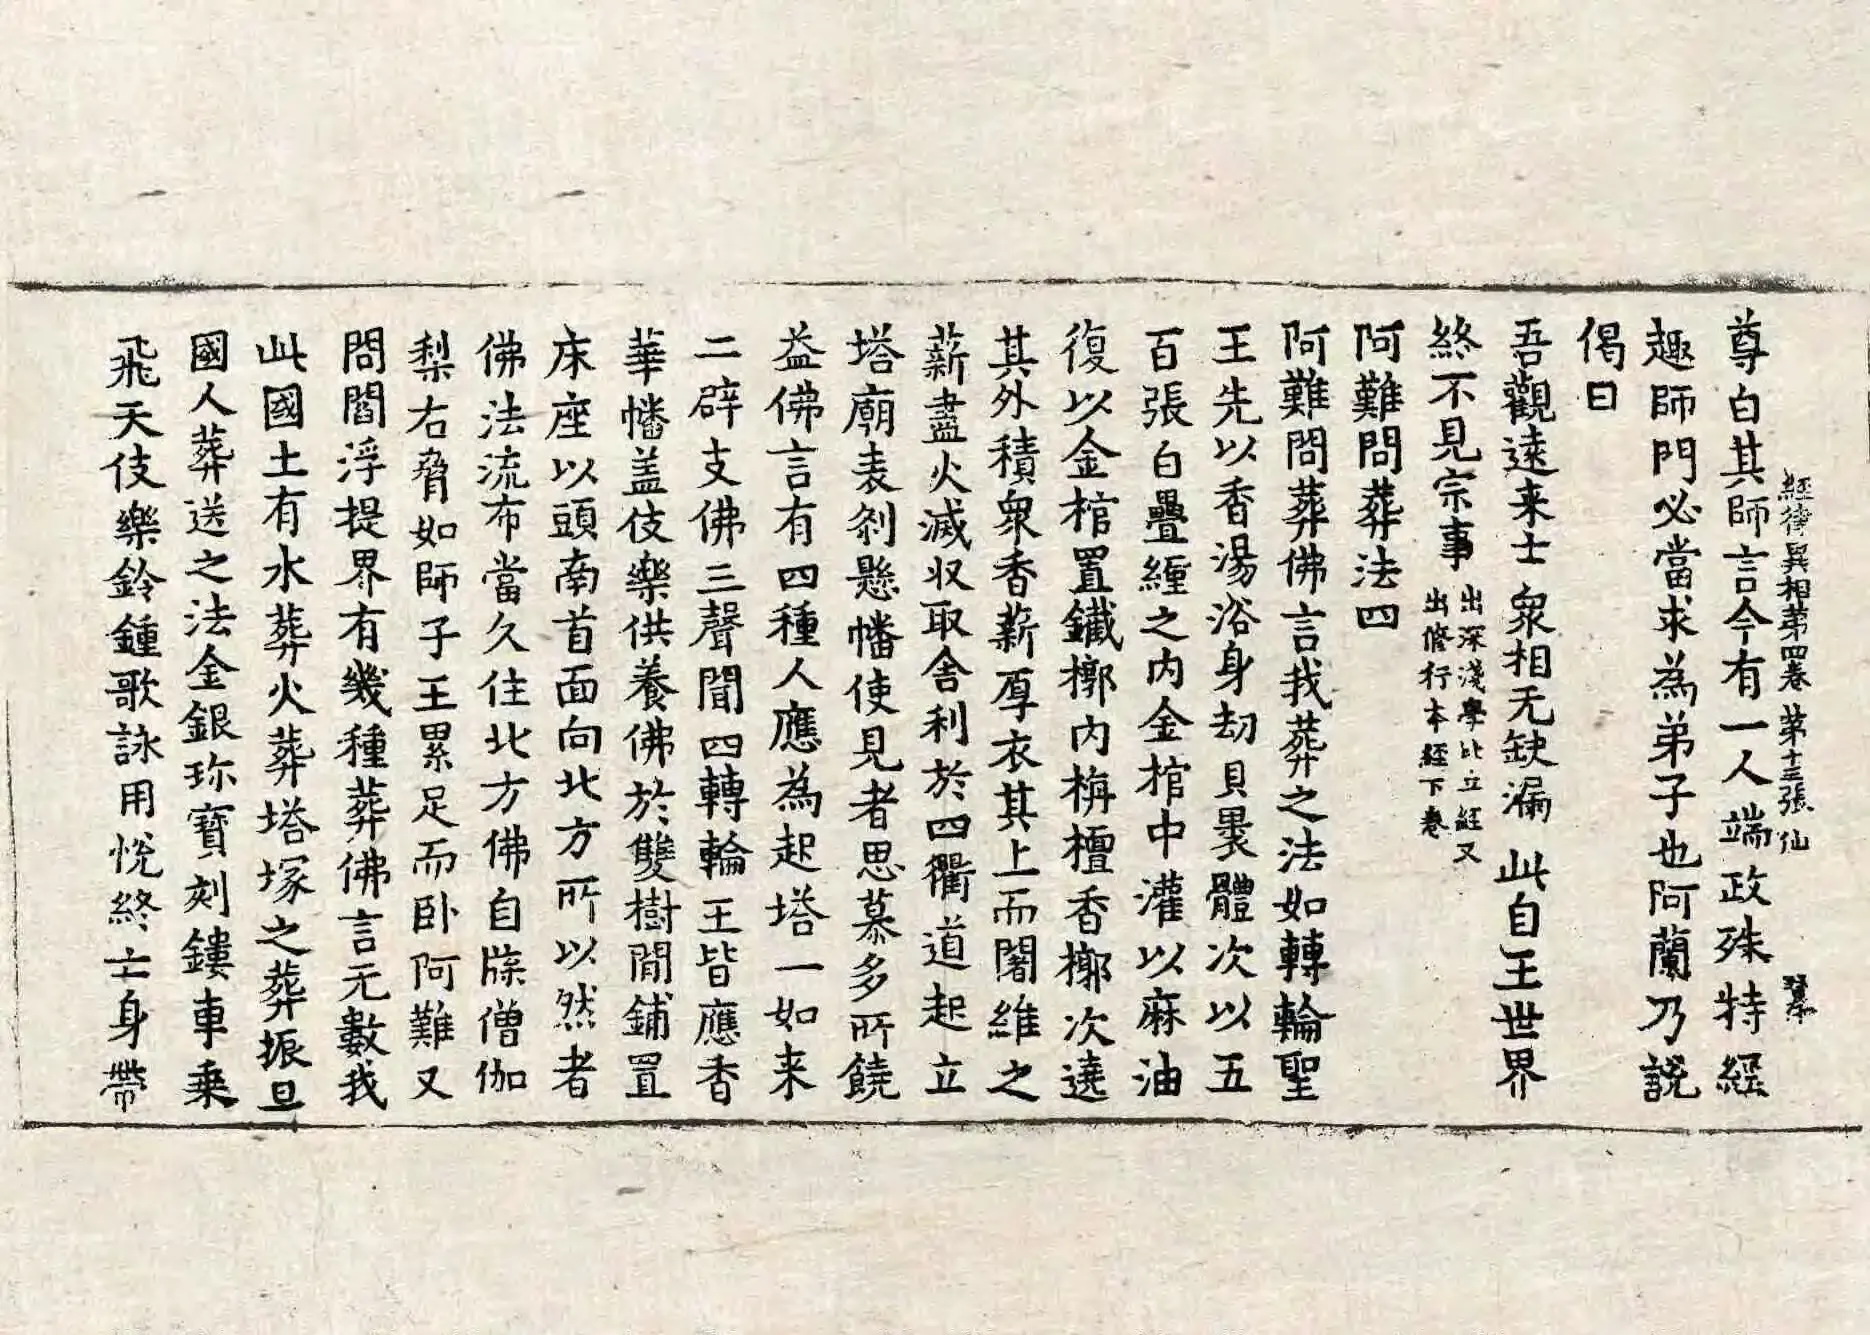 經律異相第四卷 第十三張 仙
尊白其師言今有一人端政殊特經
趣師門必當求為弟子也阿蘭乃說
偈曰
吾觀遠来士 衆相无缺漏 此自王世界
終不見宗事 出深淺學比丘經又
出修行本經下卷
阿難問葬法四
阿難問葬佛言我葬之法如轉輪聖
王先以香湯浴身劫貝裹體次以五
百張白疊纏之内金棺中灌以麻油
復以金棺置鐵槨内栴檀香槨次遶
其外積衆香薪厚衣其上而闍維之
薪盡火滅収取舍利於四衢道起立
塔廟表刹懸幡使見者思慕多所饒
益佛言有四種人應為起塔一如来
二辟支佛三聲聞四轉輪王皆應香
華幡盖伎樂供養佛於雙樹間鋪置
床座以頭南首面向北方所以然者
佛法流布當久住北方佛自牒僧伽
梨右脅如師子王累足而卧阿難又
問閻浮提界有幾種葬佛言无數我
此國土有水葬火葬塔塚之葬振旦
國人葬送之法金銀珎寶刻鏤車乘
飛天伎樂鈴鍾歌詠用悅終亡身帶